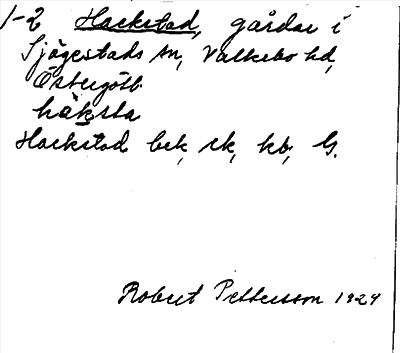 1-2 Hackstad, gårdar i
Sjögestads sn, Valkebo hd,
Östergötl.
håksta
Hackstad bek, rk, kb, G.
Robert Pettersson 1929